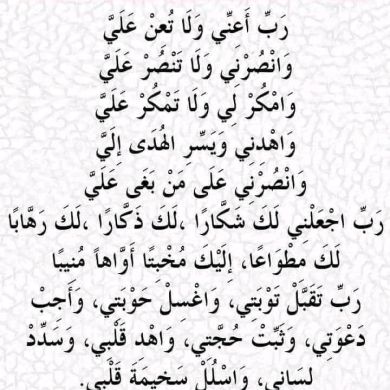 رَبِّ أَعِنِّي وَلَا تُعِنْ عَلَيَّ
وَانْصُرْنِي وَلَا تَنْصُرْ عَلَيَّ
وَامْكُرْ لِي وَلَا تَمْكُرْ عَلَيَّ
وَاهْدِنِي وَيَسِّرِ الهُدَى إِلَيَّ
وَانْصُرْنِي عَلَى مَنْ بَغَى عَلَيَّ
رَبِّ اجْعَلْنِي لَكَ شَكَّارًا ،لَكَ ذَكَّارًا ،لَكَ رَهَّابًا
لَكَ مِطْوَاعًا، إِلَيْكَ مُخْبِتًا أَوَّاهاً مُنِيبًا
رَبِّ تَقَبَّلْ تَوْبَتِي، وَاغْسِلْ حَوْبَتِي، وَأَجِبْ
دَعْوَتِي، وَثَبِّتْ حُجَّتِي، وَاهْدِ قَلْبِي، وَسَدِّدْ
لِسَانِي، وَاسْلُلْ سَخِيمَةَ قَلْبِي.